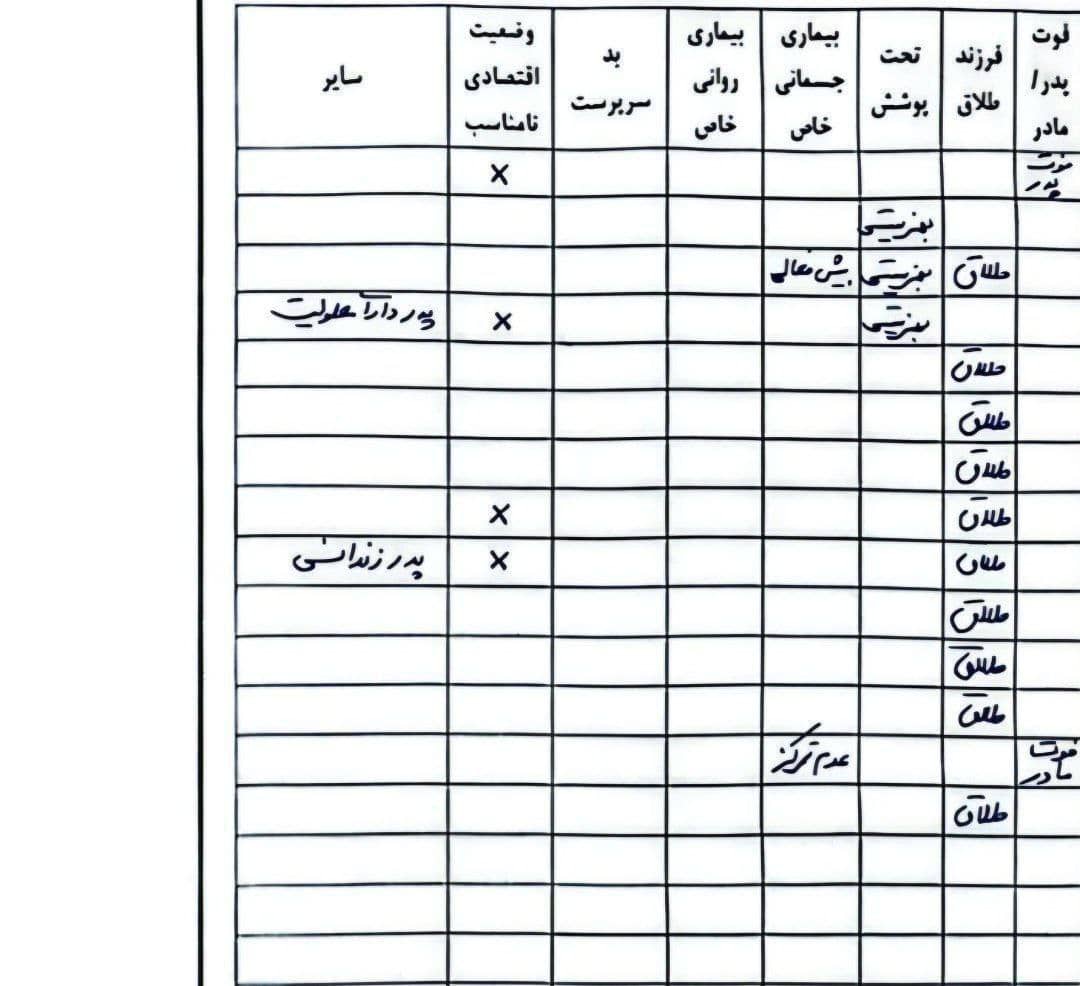 فوت پدر/ مادر | فرزند طلاق | تحت پوشش | بیماری جسمانی خاص | بیماری روانی خاص | بد سرپرست | وضعیت اقتصادی نامناسب | سایر
فوت پدر | | | | | | × |
| | بهزیستی | | | | |
| طلاق | بهزیستی | بیش فعالی | | | |
| | بهزیستی | | | | × | پدر دارا معلولیت
| طلاق | | | | | |
| طلاق | | | | | |
| طلاق | | | | | |
| طلاق | | | | | × |
| طلاق | | | | | × | پدر زندانی
| طلاق | | | | | |
| طلاق | | | | | |
| طلاق | | | | | |
فوت مادر | | | عدم تمرکز | | | |
| طلاق | | | | | |